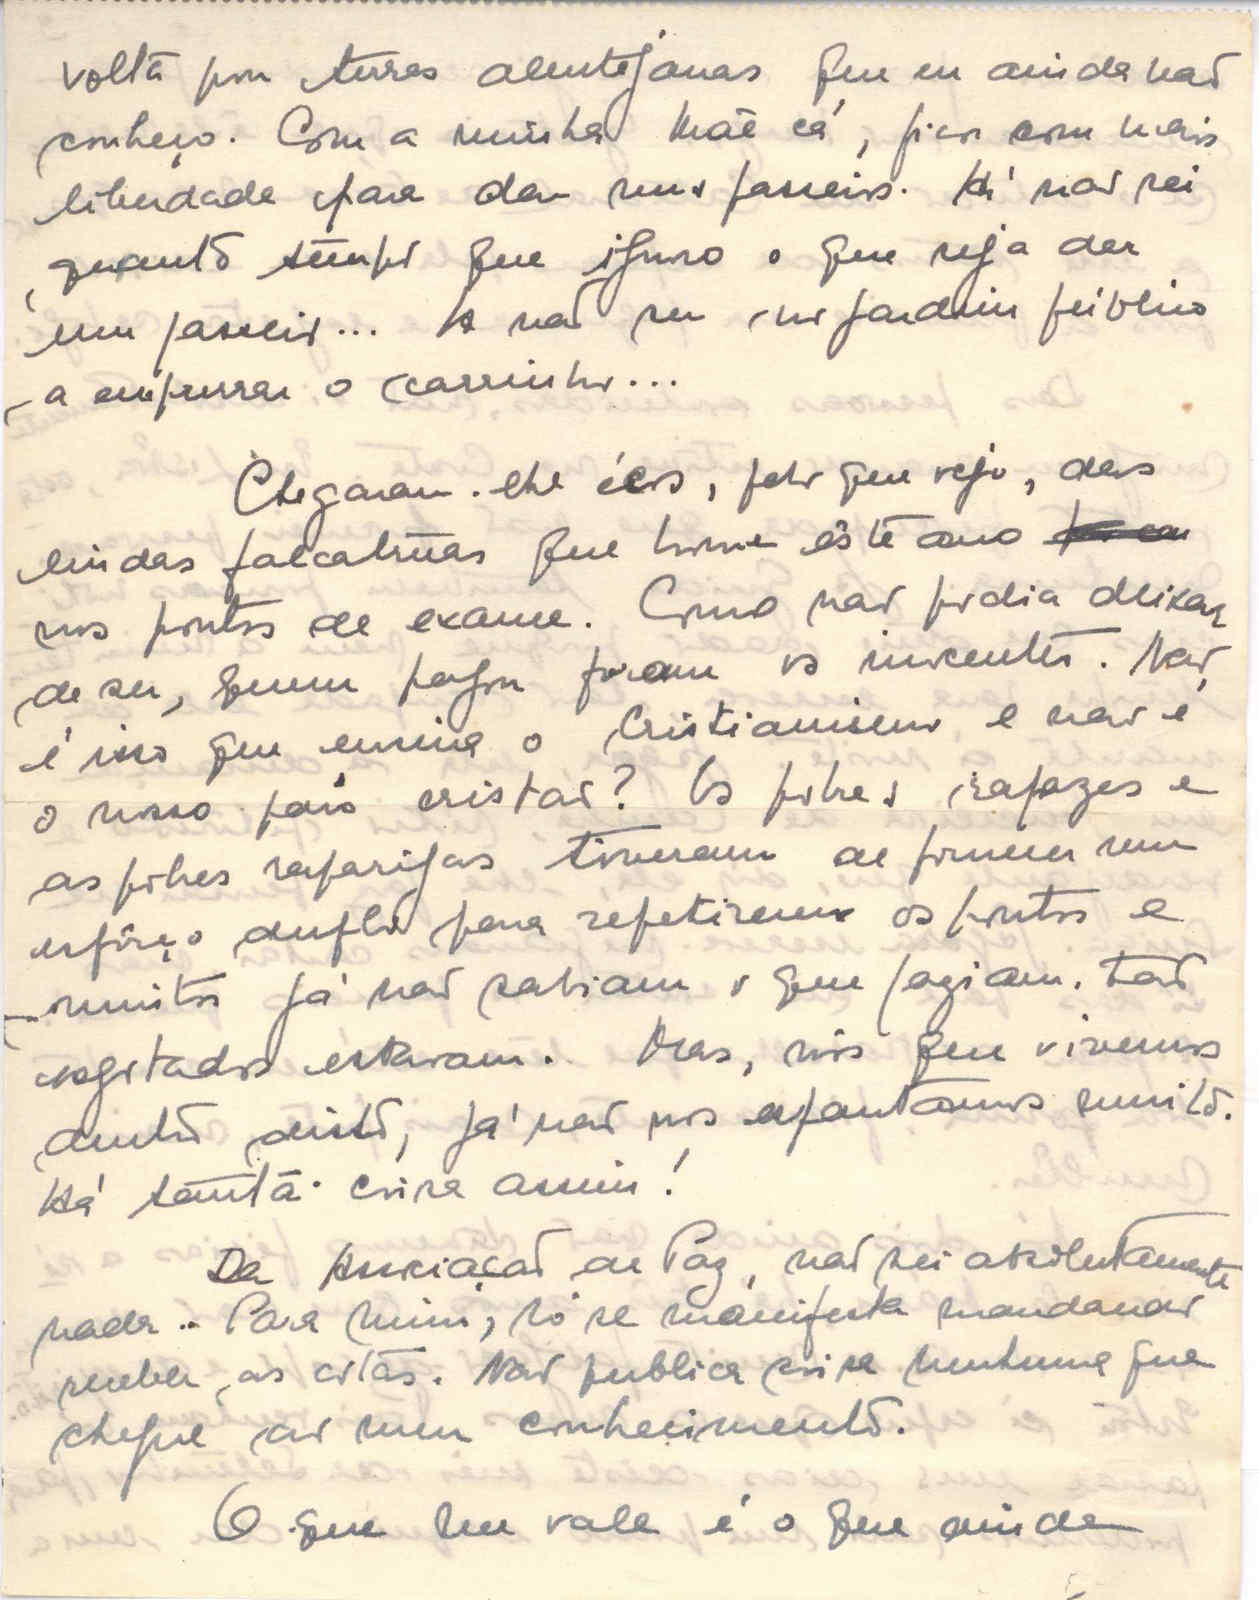 volta por terras alentejanas que eu ainda não
conheço. Com a minha Mãe cá, fico com mais
liberdade para dar uns passeios. Há não sei
quanto tempo que ignoro o que seja dar
um passeio... A não ser no jardim público
a empurrar o carrinho...
Chegaram-lhe ecos, pelo que vejo, das
lindas falcatruas que houve êste ano
nos pontos de exame. Como não podia deixar
de ser, quem pagou foram os inocentes. Não
é isso que ensina o Cristianismo e não é
o nosso país cristão? Os pobres rapazes e
as pobres raparigas tiveram de fornecer um
esfôrço duplo para repetirem os pontos e
muitos já não sabiam o que faziam. Tão
esgotados estavam. Mas, nós que vivemos
dentro disto, já não nos espantamos muito.
Há tanta coisa assim!
Da Associação da Paz, não sei absolutamente
nada. Para mim, só se manifesta mandando
receber as cotas. Não publica coisa nenhuma que
chegue ao meu conhecimento.
O que me vale é o que ainda